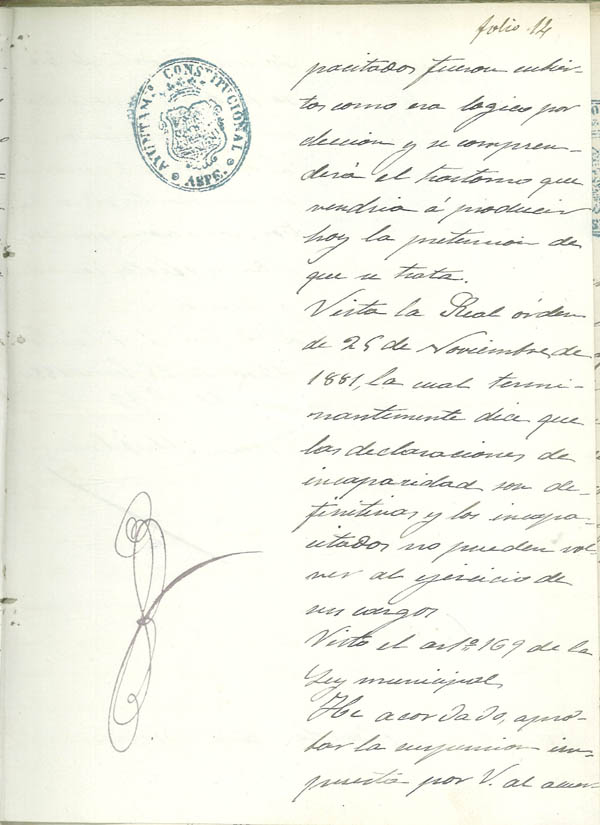 folio 14
AYUNTAM.º CONSTITUCIONAL
ASPE.
pacitados fueron cubier-
tos como era logico por
eleccion y se compren-
derá el trastorno que
vendria á producir
hoy la pretension de
que se trata.
Vista la Real órden
de 25 de Noviembre de
1881, la cual termi-
nantemente dice que
las declaraciones de
incapacidad son de-
finitivas y los incapa-
citados no pueden vol-
ver al ejercicio de
sus cargos
Visto el artº 169 de la
Ley municipal
He acordado, apro-
bar la suspension im-
puesta por V. al acuer-